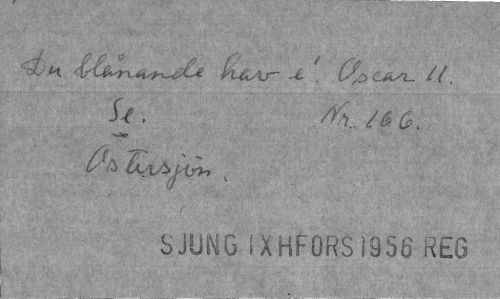 Du blånande hav e'. Oscar II.
Se. Nr. 166.
Östersjön.
SJUNG IX HFORS 1956 REG